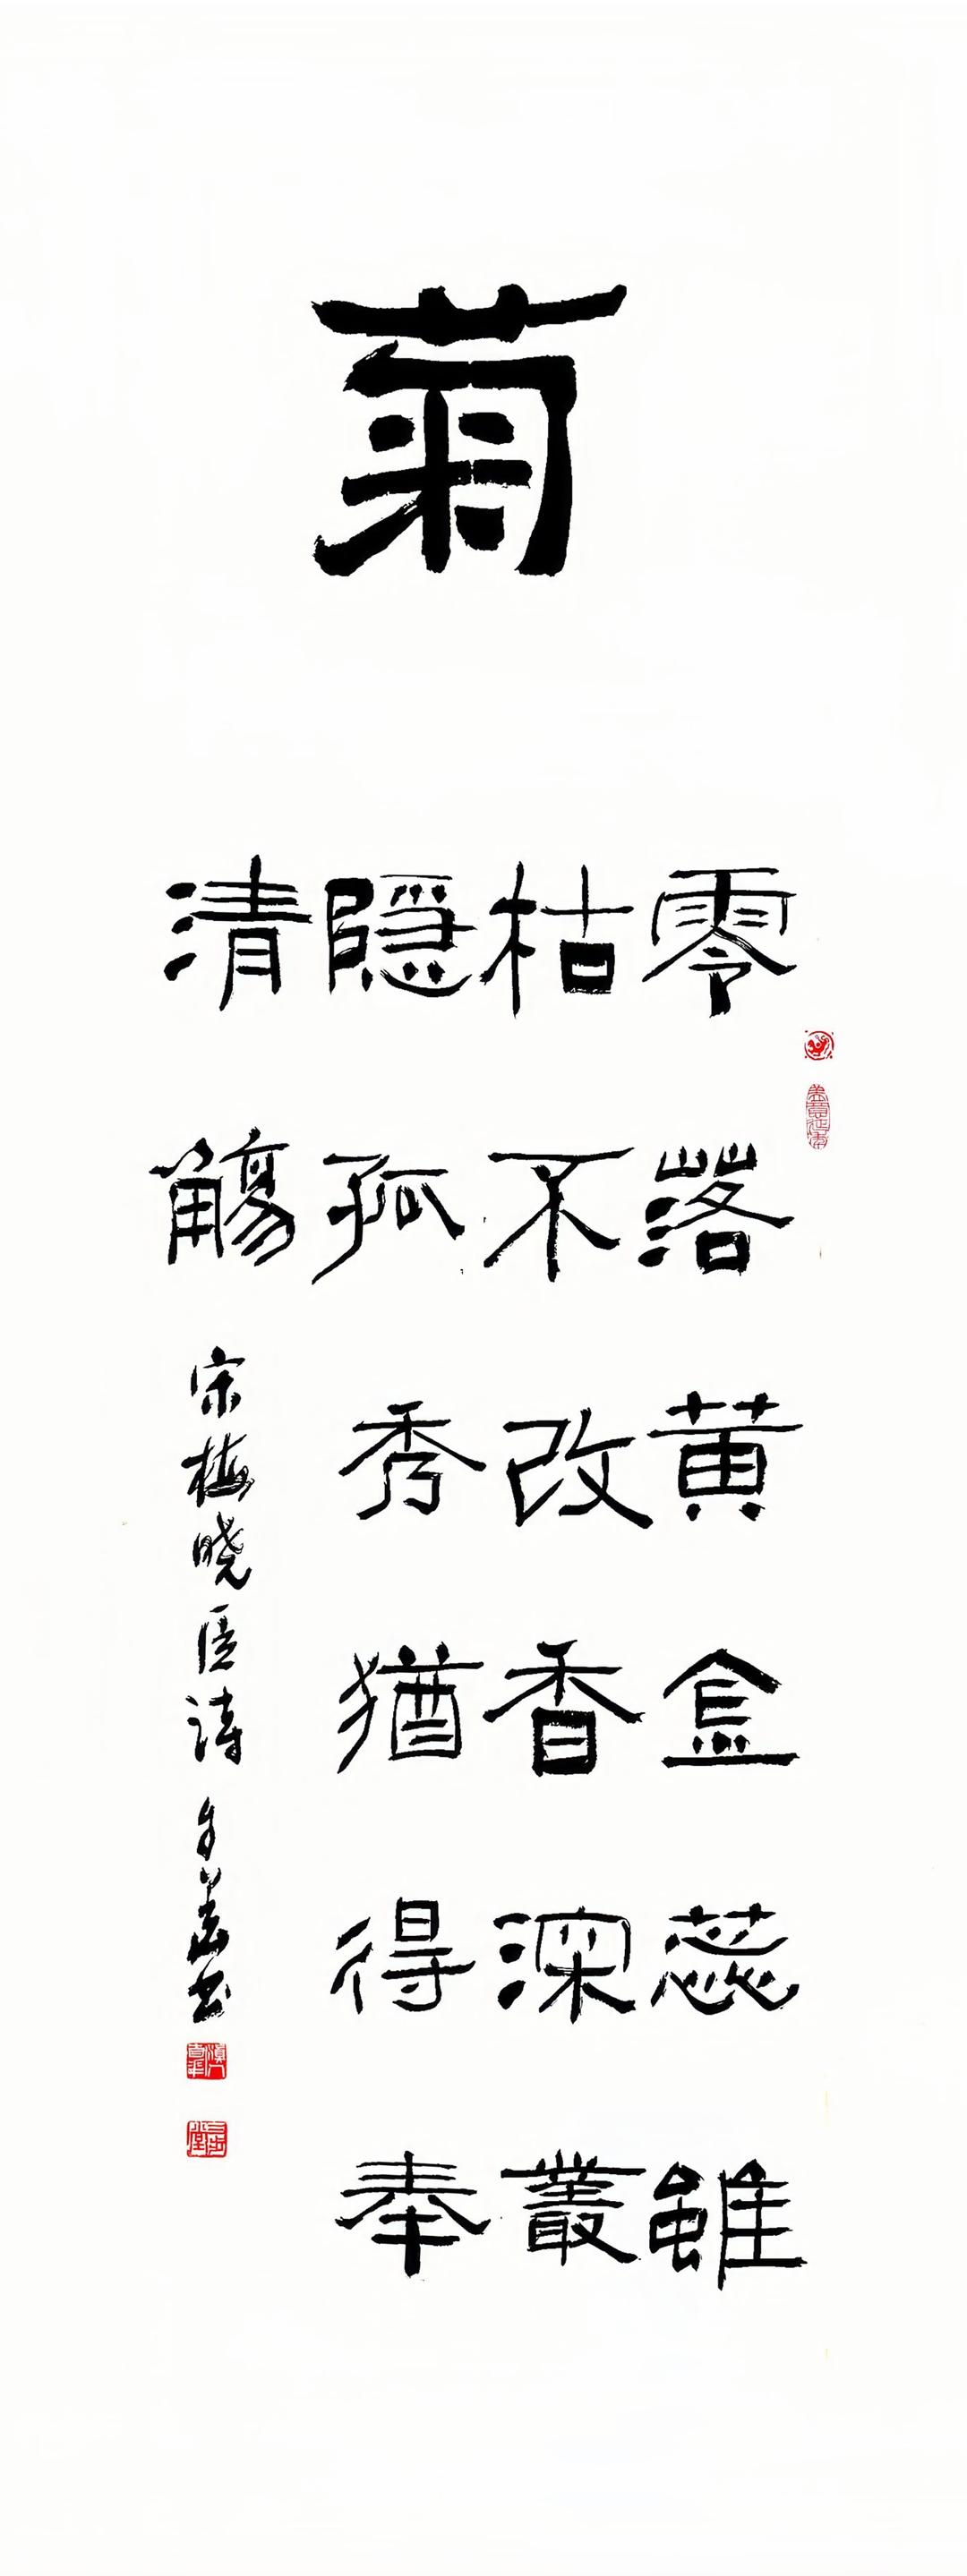 菊
零落黄金蕊雖
枯不改香深叢
隱孤秀猶得奉
清觴
宋梅晓臣诗 书